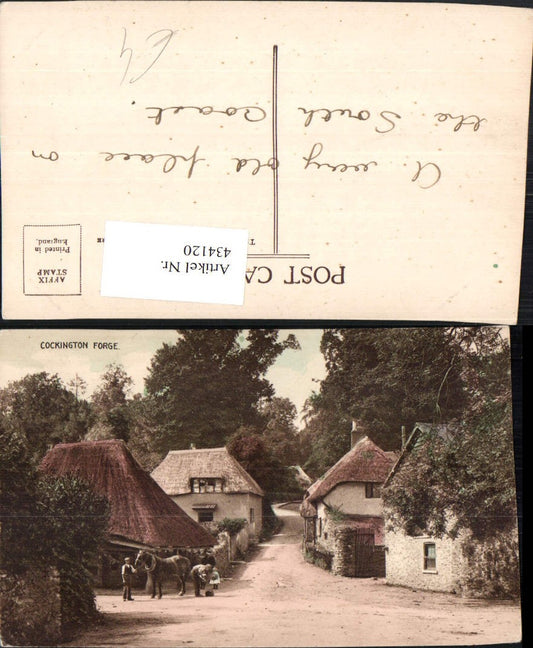 POST CA
AFFIX
STAMP
Printed in
England.
Artikel Nr.
434120
A very old place on
the South Coast.
COCKINGTON FORGE.